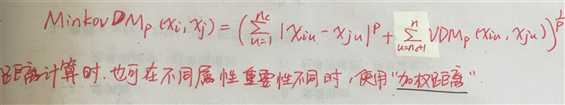 MinkovDM_p(x_i, x_j) = (∑_{u=1}^{n_c} |x_{iu} - x_{ju}|^p + ∑_{u=n_c+1}^{n} VDM_p(x_{iu}, x_{ju}))^{1/p}
距离计算时.也可在不同属性重要性不同时,使用"加权距离".